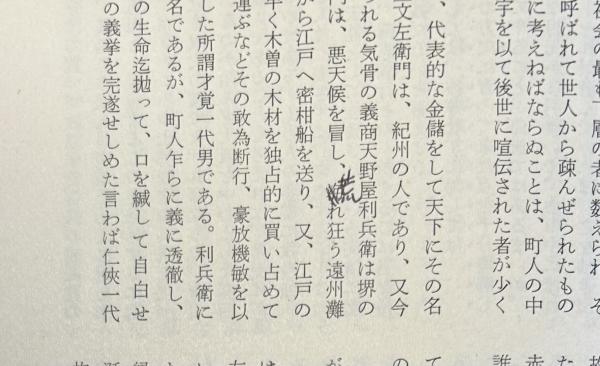 の者に数えられ
呼ばれて世人から疎んぜられたもの
に考えねばならぬことは、町人の中
字を以て後世に喧伝された者が少く
、代表的な金儲をして天下にその名
文左衛門は、紀州の人であり、又今
られる気骨の義商天野屋利兵衛は堺の
門は、悪天候を冒し、荒れ狂う遠州灘
から江戸へ密柑船を送り、又、江戸の
早く木曽の木材を独占的に買い占めて
運ぶなどその敢為断行、豪放機敏を以
した所謂才覚一代男である。利兵衛に
名であるが、町人乍らに義に透徹し、
の生命迄抛って、口を緘して自白せ
の義挙を完遂せしめた言わば仁俠一代
た
赤
誰
て
の
が
は